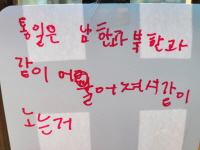 통일은 남한과북한과
같이 어
울어져서같이
노는거